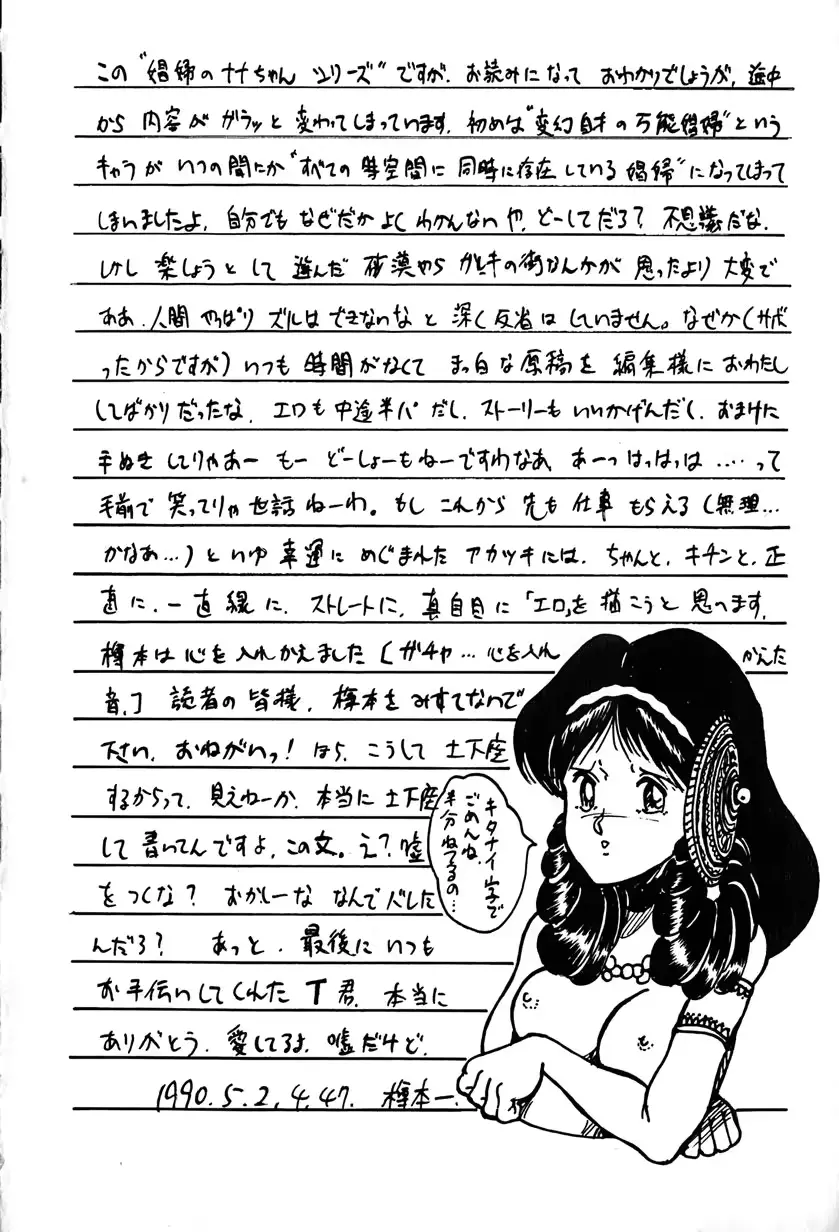 この"娼婦のナナちゃんシリーズ"ですが、お読みになっておわかりでしょうが、途中
から内容がガラッと変わってしまっています。初めは"変幻自才の万能娼婦"という
キャラがいつの間にか"すべての時空間に同時に存在している娼婦"になってしまって
しまいましたよ。自分でもなぜだかよくわかんないや。どーしてだろ?不思議だな。
しかし楽しようとして選んだ砂漠やらガレキの街なんかが思ったより大変で
ああ、人間やっぱりズルはできないなと深く反省はしていません。なぜか(サボ
ったからですが)いつも時間がなくてまっ白な原稿を編集様におわたし
してばかりだったな。エロも中途半パだし、ストーリーもいいかげんだし、おまけに
手ぬきしてりゃあーもーどーしょーもねーですわなあ、あーっはっはっは‥‥って
手前で笑ってりゃ世話ねーわ。もしこれから先も仕事もらえる(無理…
かなあ…)といゆ幸運にめぐまれたアカツキには、ちゃんと、キチンと、正
直に、一直線に、ストレートに、真自目に「エロ」を描こうと思へます。
樽本は心を入れかえました[ガチャ…心を入れかえた
音、]読者の皆様、樽本をみすてないで
下さい、おねがいっ!ほら、こうして土下座
するからって、見えねーか、本当に土下座
して書いてんですよ、この文。え?嘘
をつくな?おかしーななんでバレした
んだろ?あっと、最後にいつも
お手伝いしてくれたT君、本当に
ありがとう。愛してるよ。嘘だけど。
1990.5.2.4.47. 樽本一.
キタナイ字で
ごめんね。
半分ねてるの…